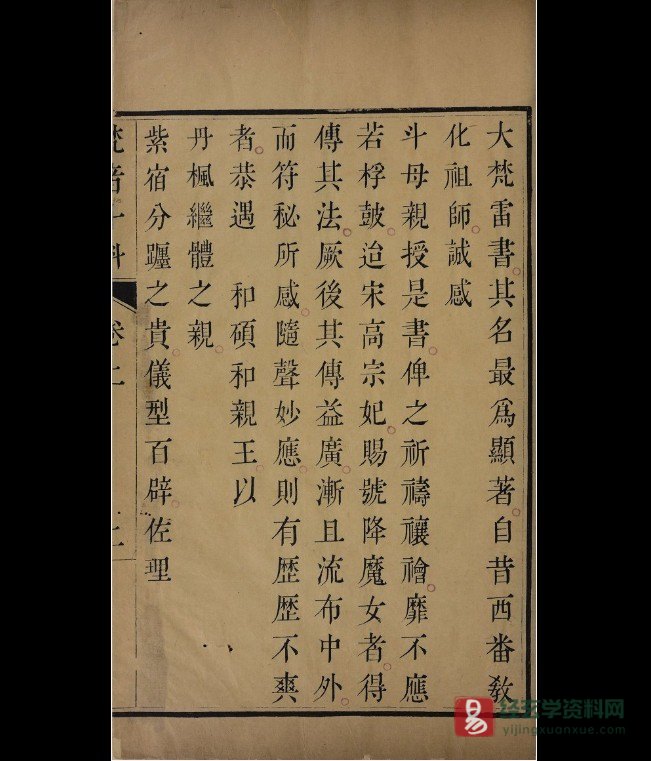 大梵雷書其名最爲顯著自昔西畨敎
化祖師誠感
斗母親授是書俾之祈禱禳禬靡不應
若桴鼓迨宋高宗妃賜號降魔女者得
傳其法厥後其傳益廣漸且流布中外
而符秘所感隨聲妙應則有歷歷不爽
者恭遇　和碩和親王以
丹楓繼體之親
紫宿分躔之貴儀型百辟佐理
梵音斗科　卷上　二
经玄学资料网
yijingxuanxue.com